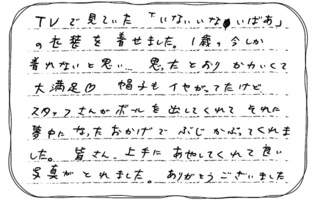 TVで見ていた「いないいないばあ」
の衣装を着せました。1歳の今しか
着れないと思い… 思ったとおり かわいくて
大満足♡ 帽子も イヤがってたけど
スタッフさんがボールを出してくれて それに
夢中になったおかげで ぶじかぶってくれま
した。皆さん、上手に あやしてくれて 良い
写真が とれました。ありがとうございました